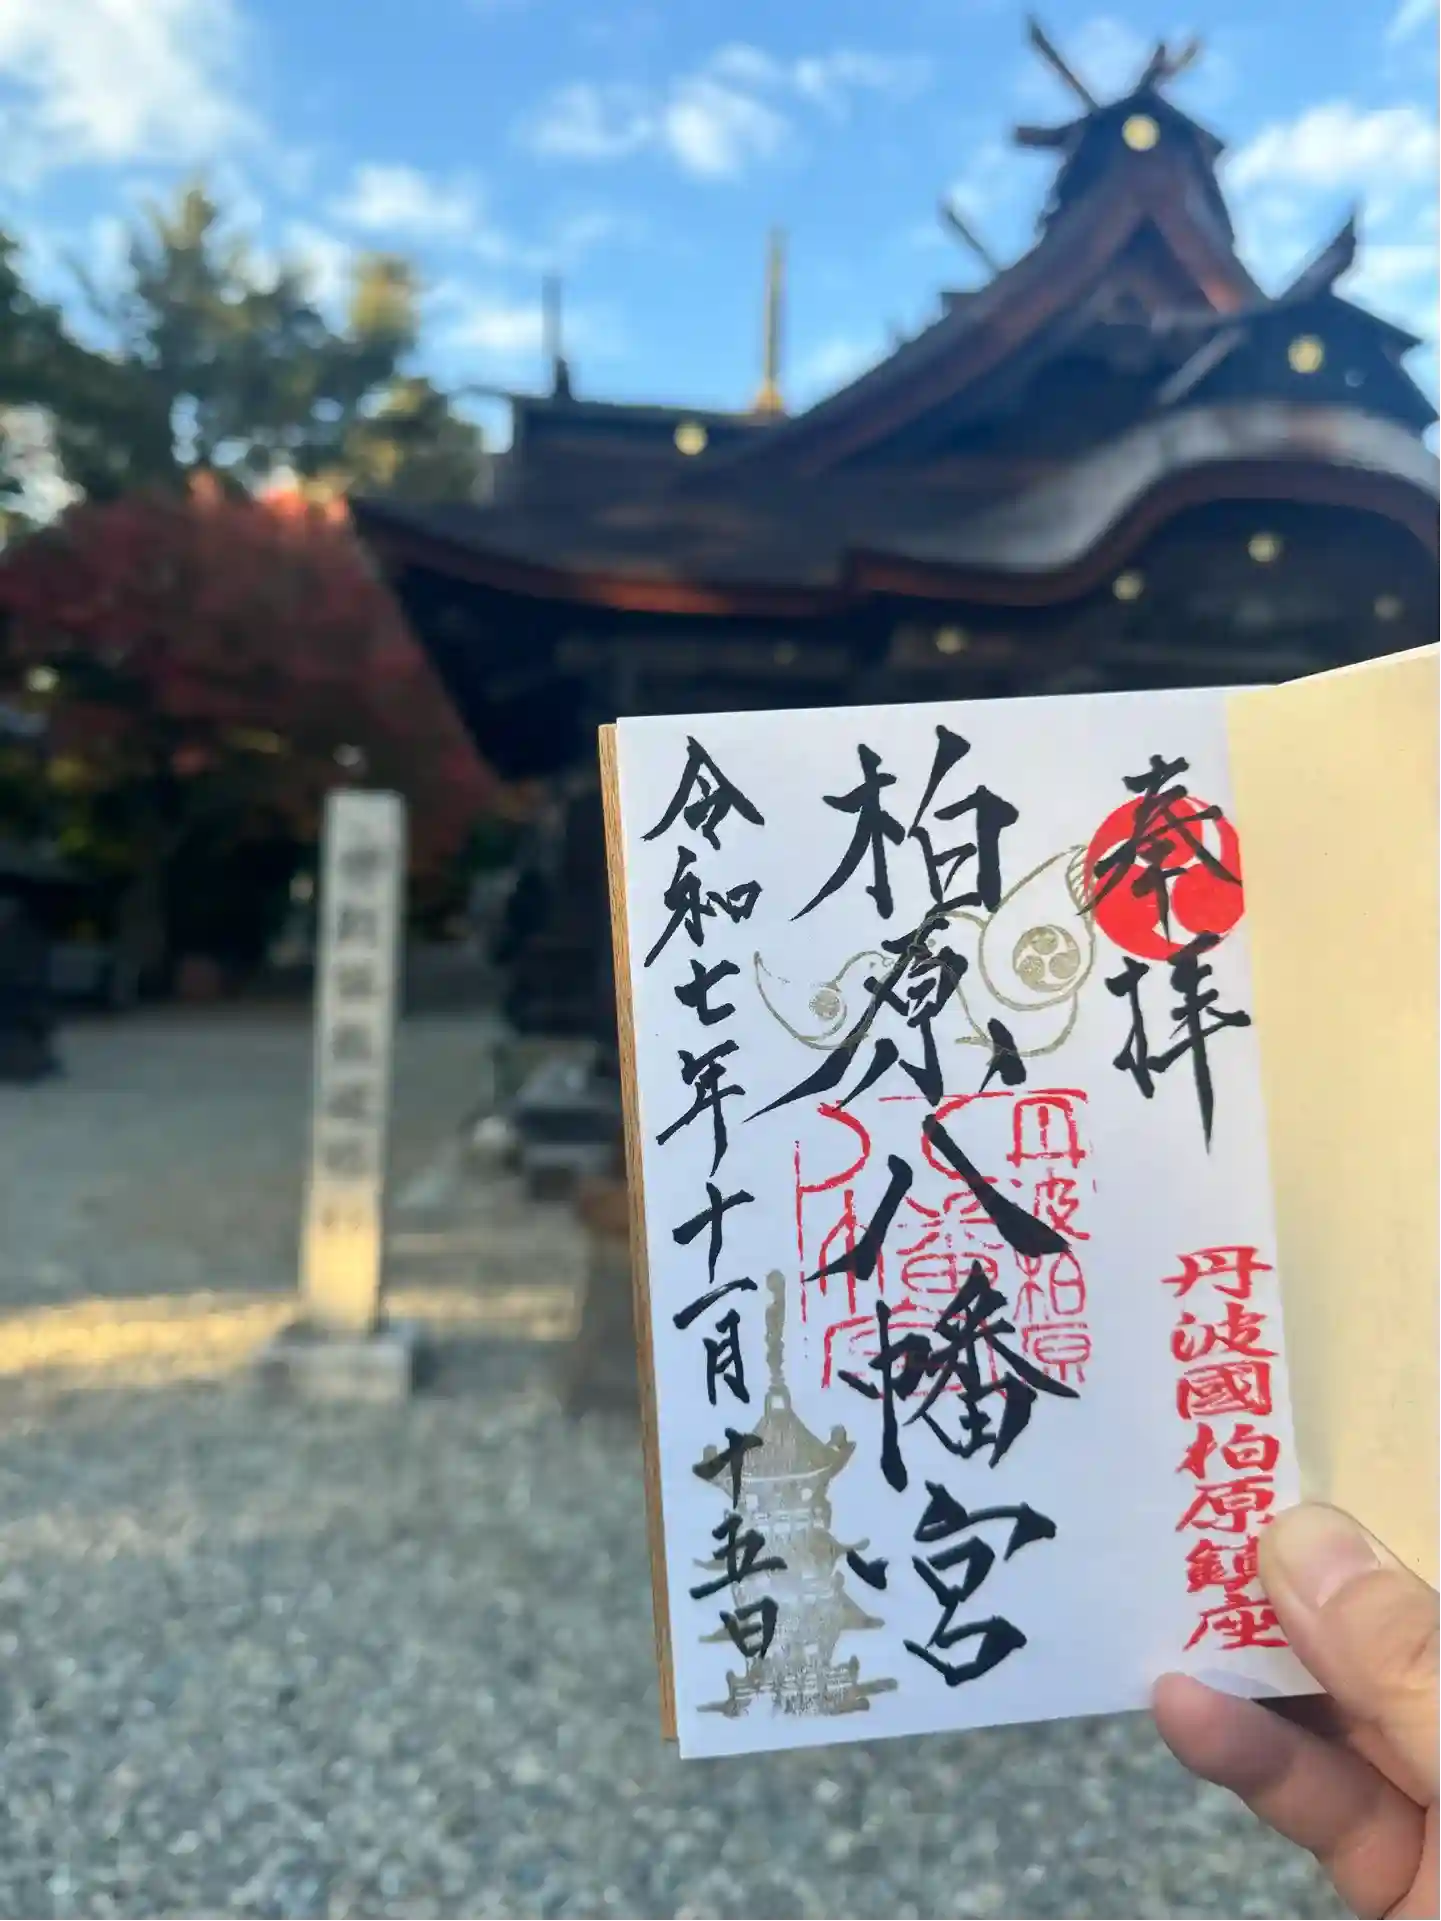 奉拝
丹波國柏原鎮座
柏原八幡宮
丹波柏原
令和七年十一月十五日